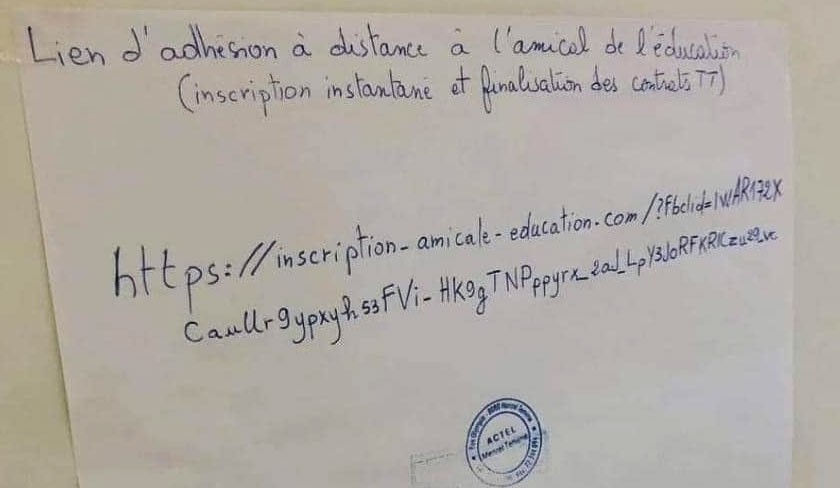 Lien d'adhésion à distance à l'amical de l'éducation
(inscription instantané et finalisation des contrats TT)
https://inscription-amicale-education.com/?fbclid=IwAR172X
CauUr9ypxyh53FVi-HK9gTNPppyrx_2aJ_LpY3JoRFKRICzu29_vc
ACTEL
Menzel Temime